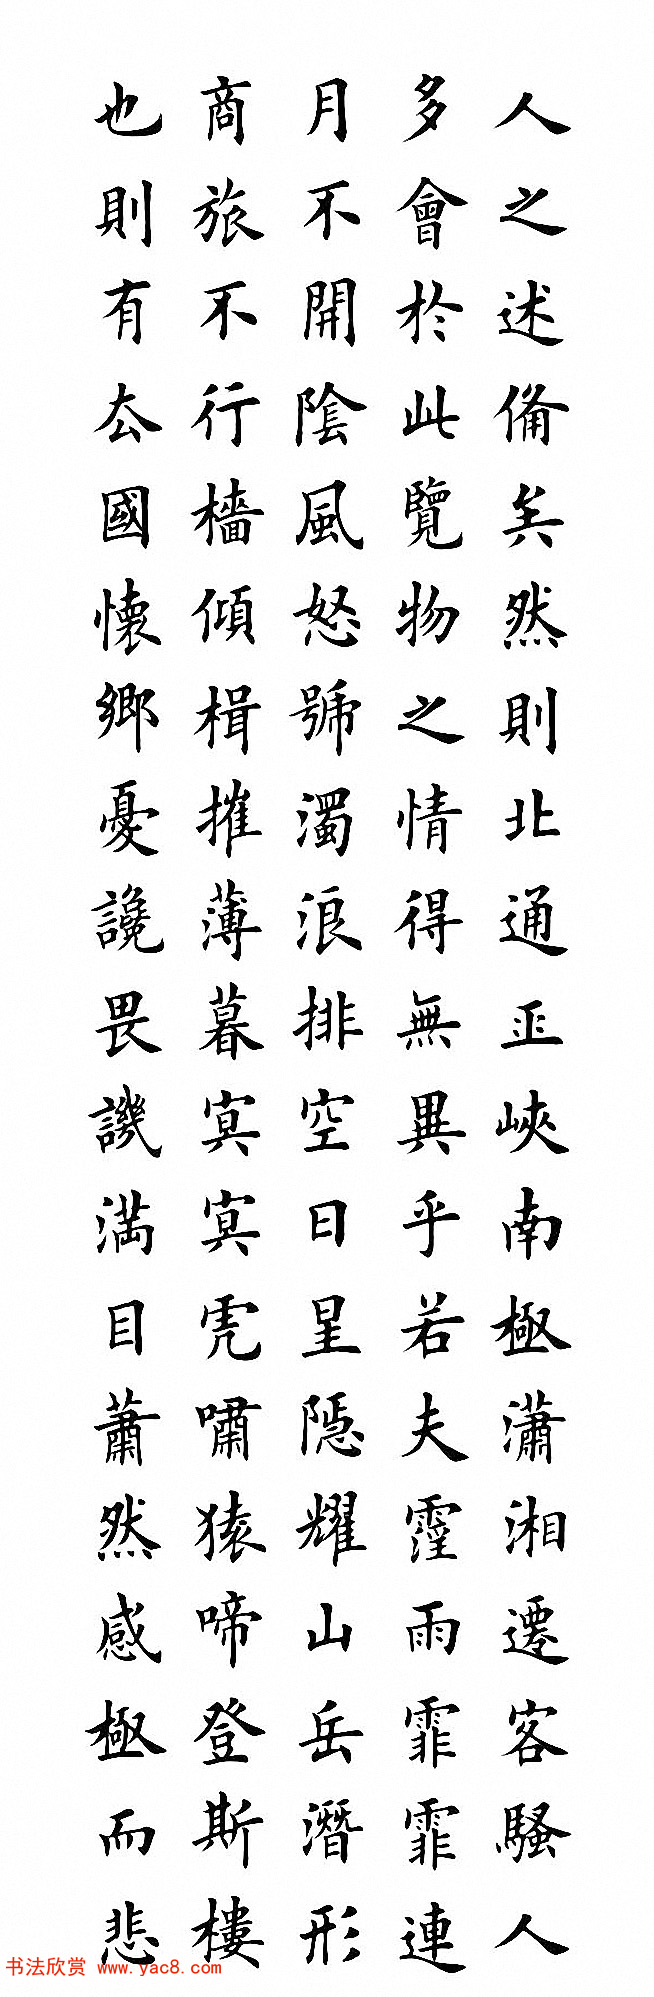 人之述備矣然則北通巫峽南極瀟湘遷客騷人
多會於此覽物之情得無異乎若夫霪雨霏霏連
月不開陰風怒號濁浪排空日星隱耀山岳潛形
商旅不行檣傾楫摧薄暮冥冥虎嘯猿啼登斯樓
也則有去國懷鄉憂讒畏譏滿目蕭然感極而悲
书法欣赏 www.yac8.com